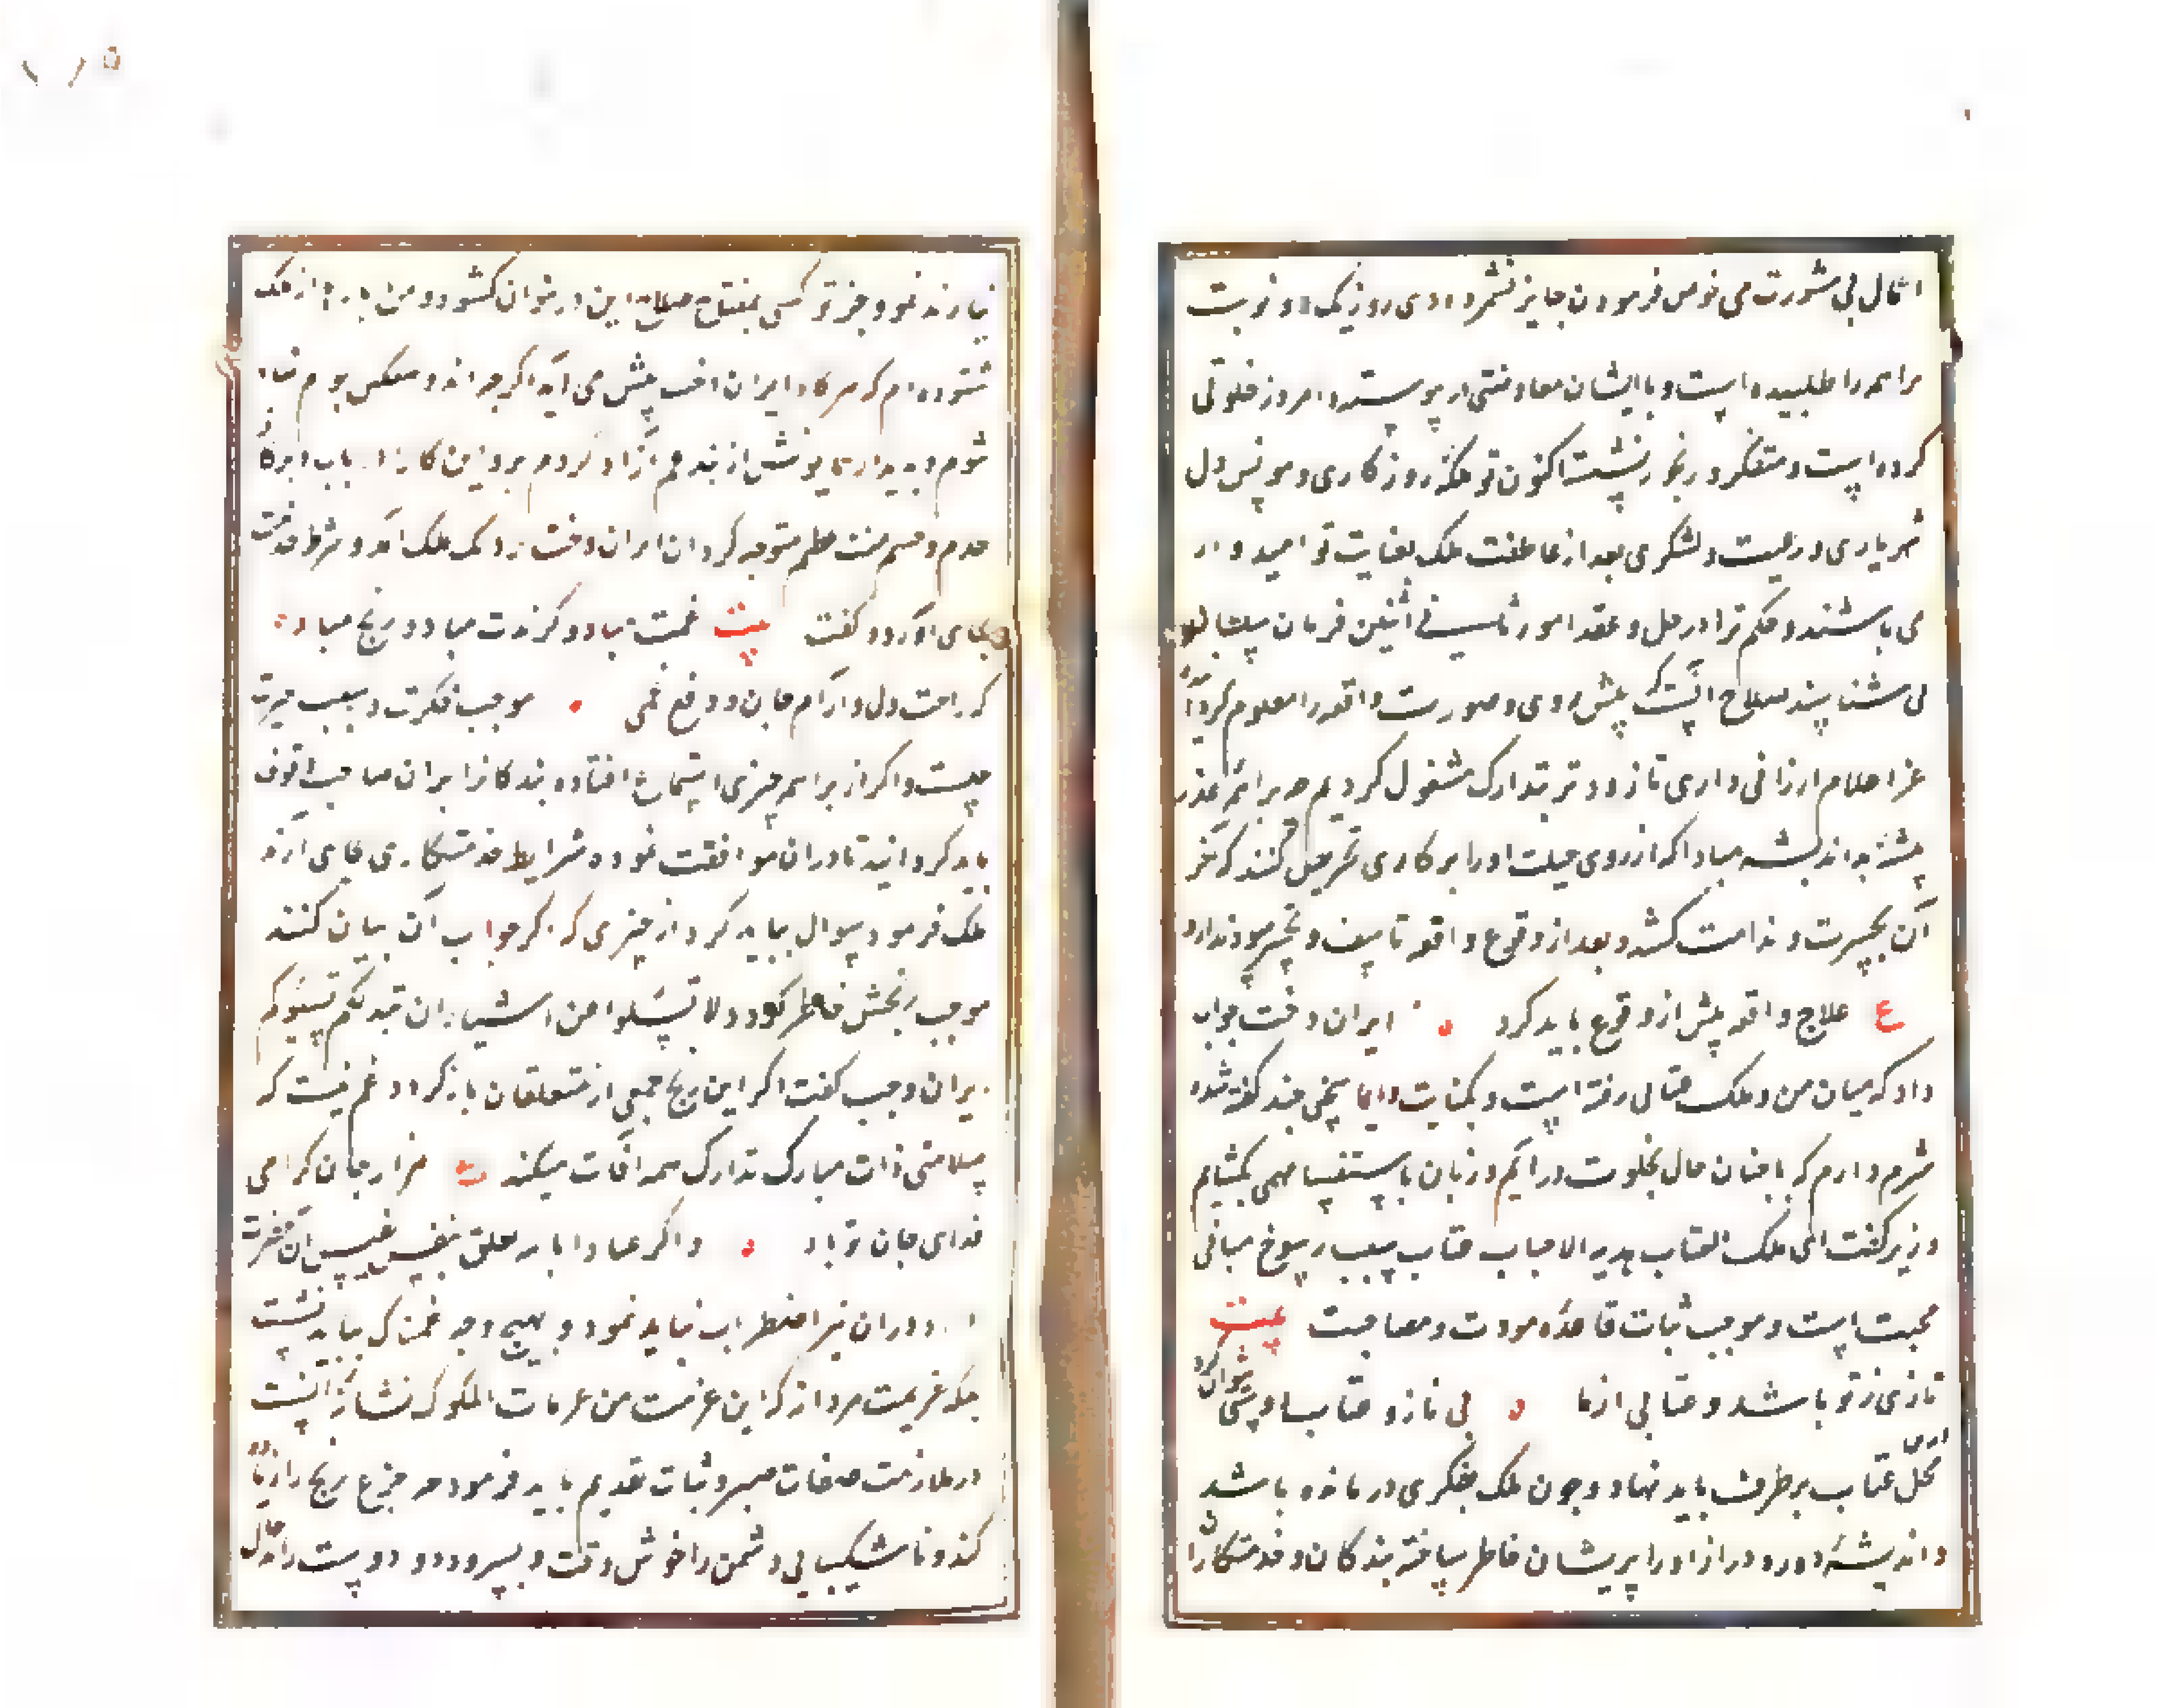 امثال بی مشورت می خوض فرمودن جایز نشمردادی روزیک دو نوبت
براهمه را طلبیده است و با ایشان معاوضتی در پیوسته و امروز خلوتی
کرده است و متفکر و رنجور نشسته اکنون تو ملکهٔ روزگاری و مونس دل
شهریاری و رعیت و لشکری بعد از عاطفت ملک بعنایت تو امیدوار
می باشند و حکم ترا در حل و عقد امور ثانی اثنین فرمان
می شناسند صلاح آنست که پیش روی و صورت واقعه را معلوم کرده
مرا اعلام ارزانی داری تا زودتر بتدارک مشغول گردیم چه براهمه غدر
پیشه بداندیشه مبادا که از روی حیلت او را بر کاری تحریض کنند که آخر
آن بحسرت و ندامت کشد و بعد از وقوع واقعه تاسف و تحسر سود ندارد
ع علاج واقعه پیش از وقوع باید کرد ایران دخت جواب
داد که میان من و ملک عتابی رفته است و بکنایت و ایما سخنی چند گفته شده
شرم دارم که با چنان حال بخلوت درآیم و زبان باستفسار مهمی بگشایم
وزیر گفت ای ملکه العتاب هدیه الاحباب عتاب سبب رسوخ مبانی
محبت است و موجب ثبات قاعدهٔ مودت و مصاحبت بیت
نازی ز تو باشد و عتابی از ما بی ناز و عتاب دوستی نتوان کرد
این محل عتاب برطرف باید نهاد و چون ملک بفکری درمانده باشد
و اندیشهٔ دور و دراز او را پریشان خاطر ساخته بندگان و خدمتکاران
نیارند نمود و جز تو کسی بمفتاح صلاح این در نتوان گشود و من بارها از ملک
شنوده ام که هرگاه ایران دخت پیش می آید اگرچه اندوهگین بوم شاد
شوم و بدیدار همایونش از بند غم آزاد گردم برو و این کار را دریاب و بر کافه
خدم و حشم منت عظیم متوجه گردان ایران دخت نزدیک ملک آمد و شرط خدمت
بجای آورد و گفت بیت غمت مباد و گزندت مباد و رنج مباد
که راحت دل و آرام جان و دفع غمی موجب فکرت و سبب حیرت
چیست و اگر از براهمه چیزی استماع افتاده بندگان را بر آن صاحب وقوف
باید گردانید تا در آن موافقت نموده شرایط خدمتکاری بجای آرند
ملک فرمود سوال نباید کرد از چیزی که اگر جواب آن بیان کنند
موجب رنجش خاطر گردد لا تسئلوا عن اشیاء ان تبد لکم تسؤکم
ایران دخت گفت اگر این رنج بجمعی از متعلقان بازگردد غم نیست که
سلامتی ذات مبارک تدارک همه آفات میکند ع هزار جان گرامی
فدای جان تو باد و اگر عیاذا بالله تعلق بنفس نفیس آن حضرت
دارد در آن نیز اضطراب نباید نمود و بهیچ وجه غمناک نباید نشست
بلکه عزیمت مردانه که این عزمت من عزمات الملوک نشانهٔ آنست
در ملازمت صفات صبر و ثبات تقدیم باید فرمود چه جزع رنج را زیاده
کند و ناشکیبایی دشمن را خوش وقت و مسرور دارد و دوست را